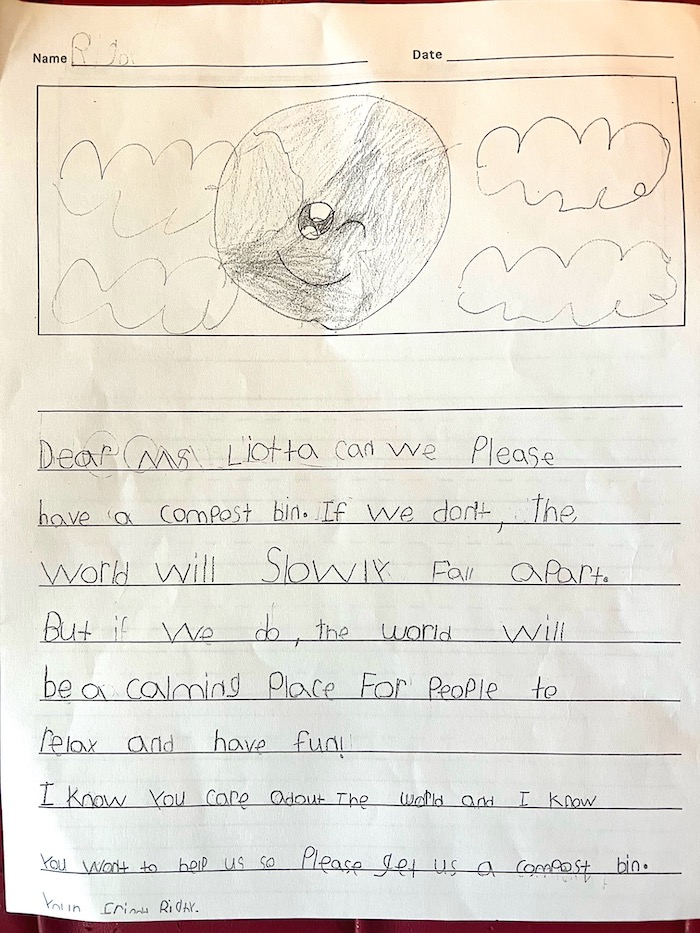 Name
Date
Dear Ms Liotta can we Please
have a compost bin. If we don't, the
world will Slowly Fall apart.
But if we do, the world will
be a calming Place For People to
relax and have fun!
I know you care adout The world and I know
You want to help us so Please get us a compost bin.